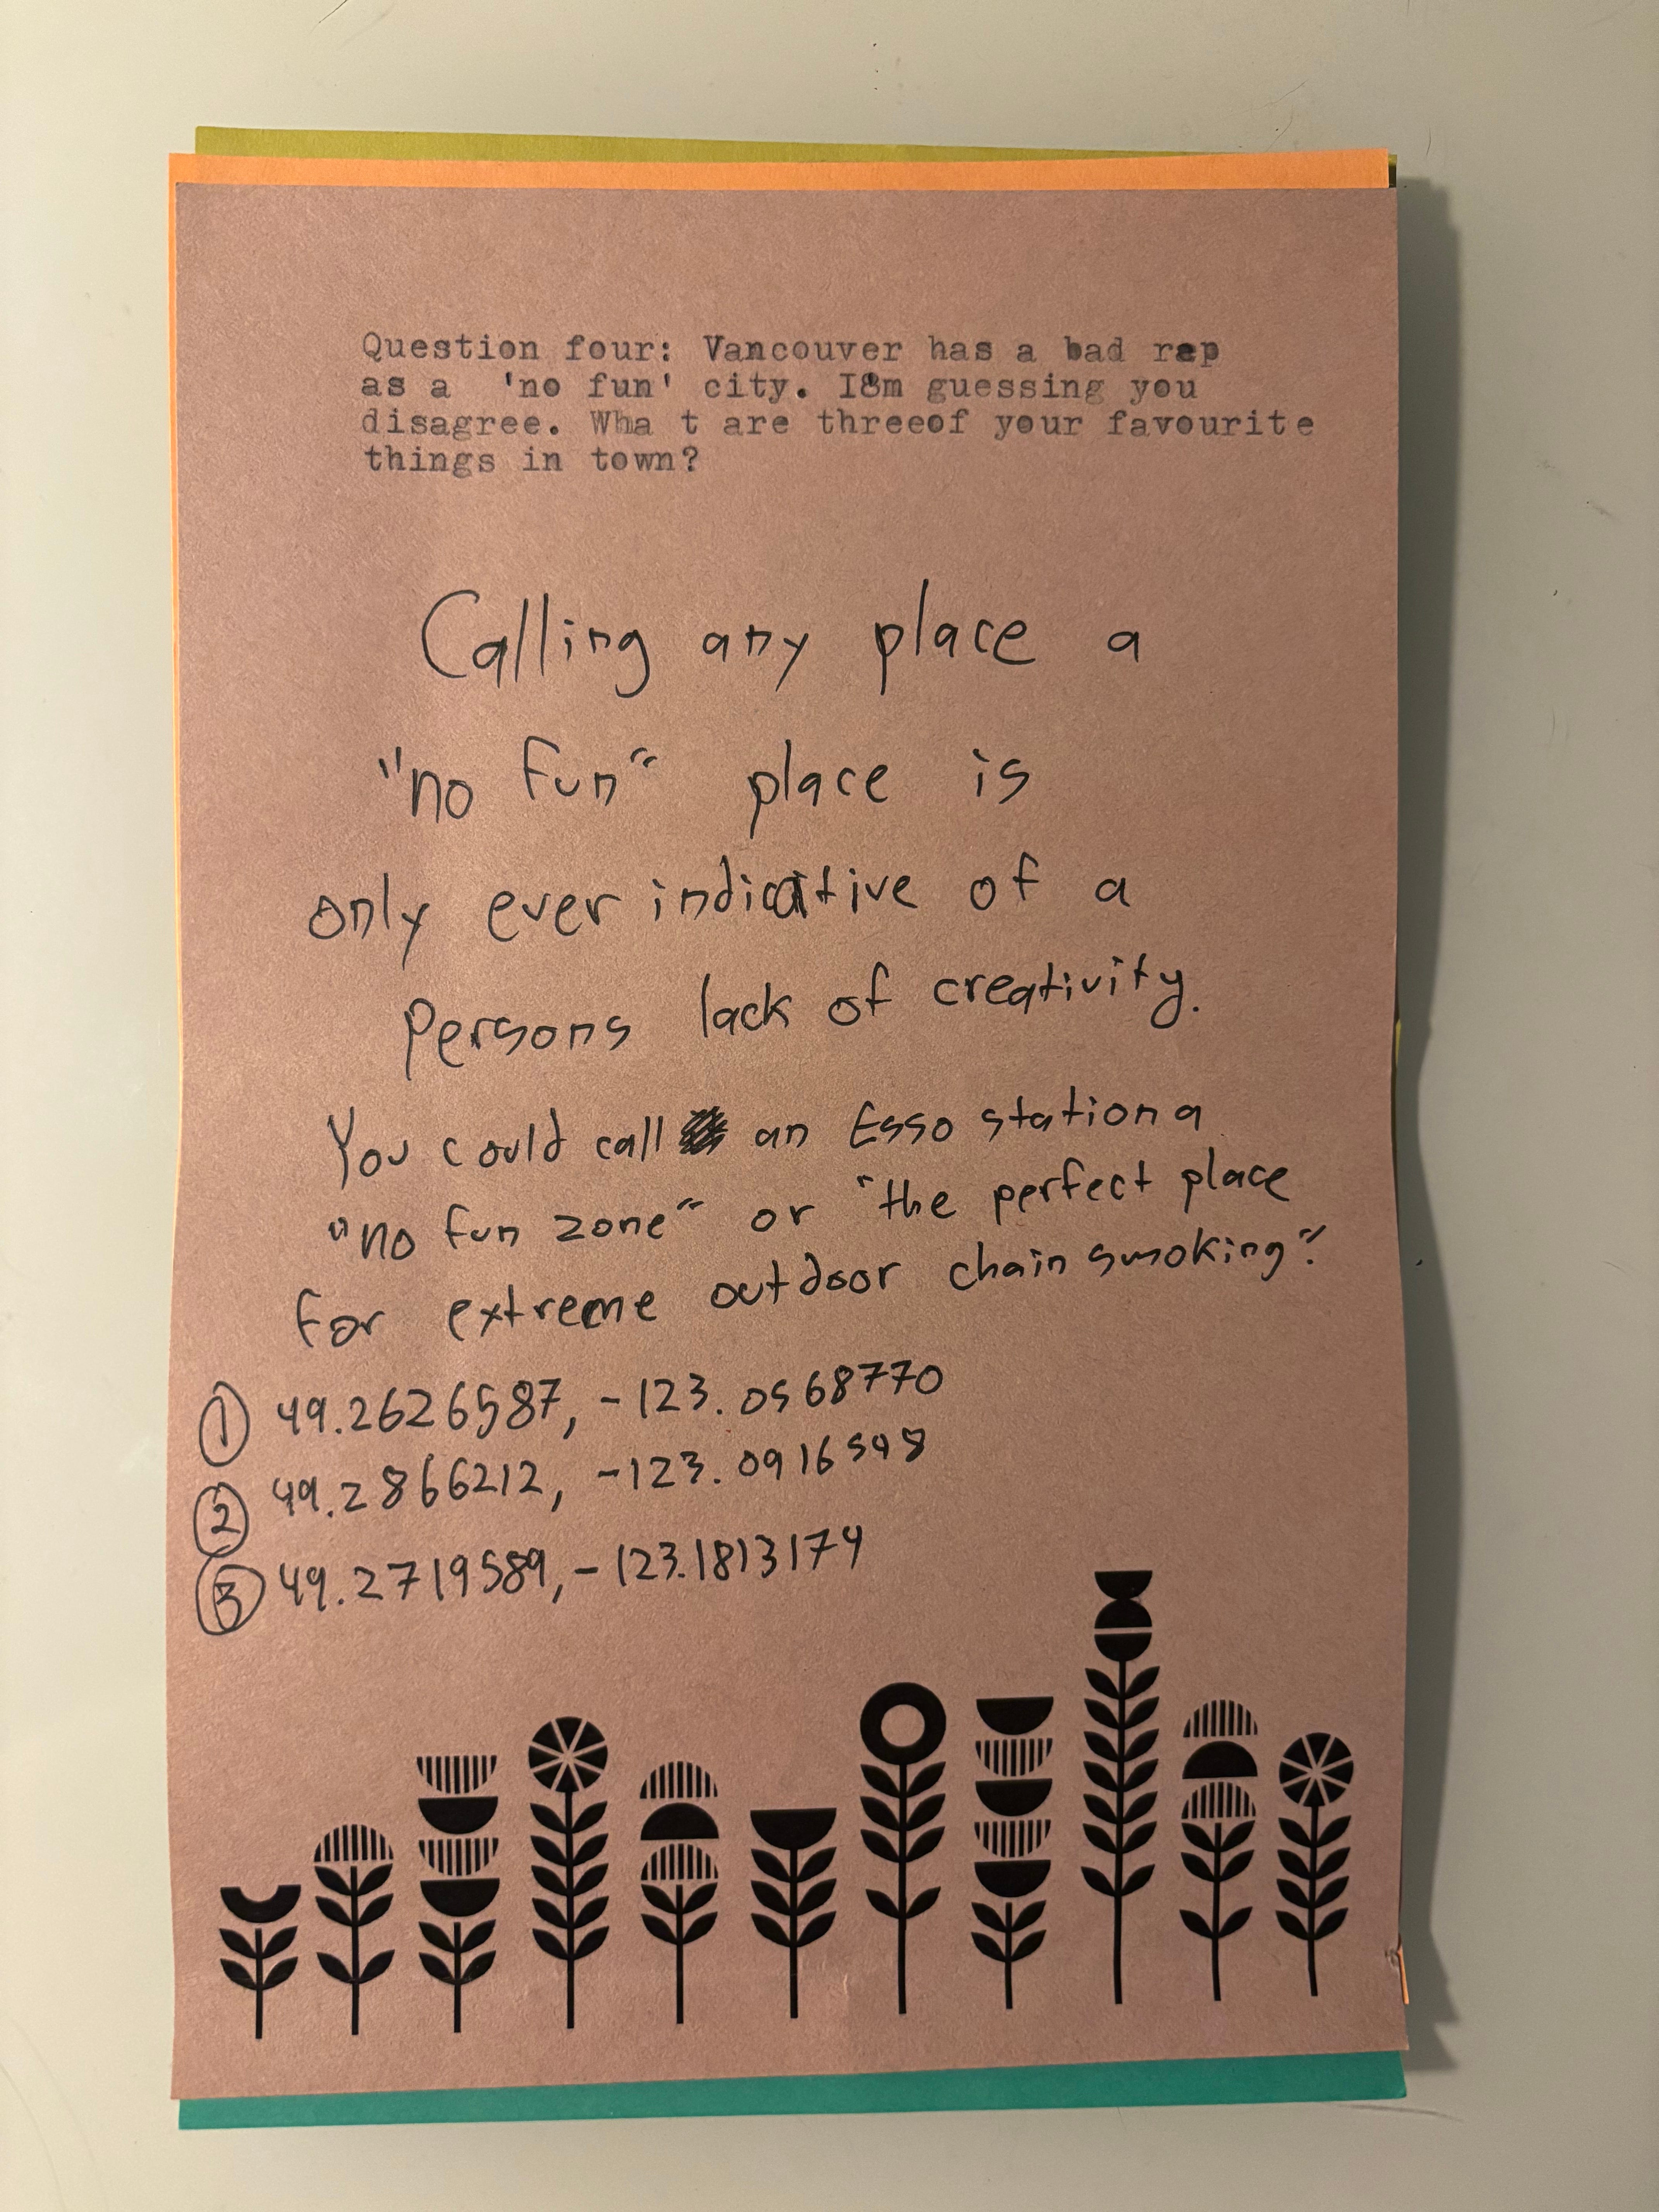 Question four: Vancouver has a bad rep
as a 'no fun' city. I8m guessing you
disagree. Wha t are threeof your favourite
things in town?
Calling any place a
"no fun" place is
only ever indicative of a
persons lack of creativity.
You could call an Esso station a
"no fun zone" or "the perfect place
for extreme outdoor chain smoking".
① 49.2626587, -123.0568770
② 49.2866212, -123.0916548
③ 49.2719589, -123.1813174